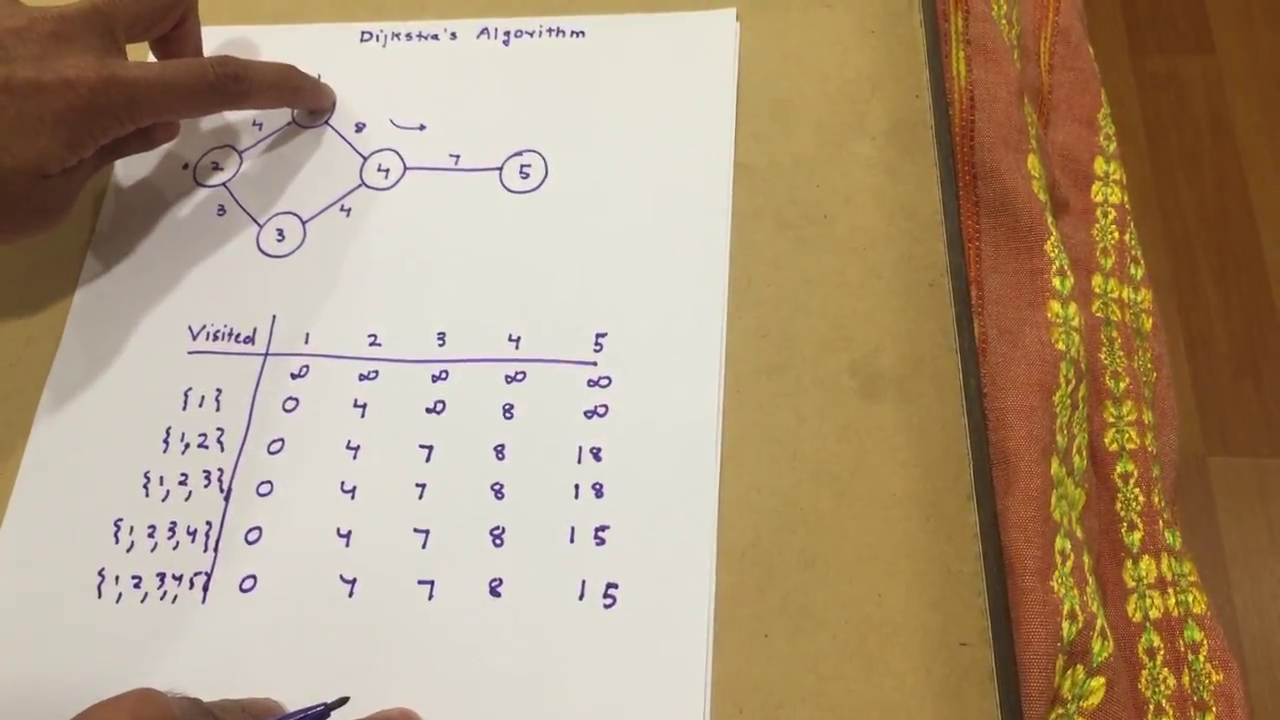 Dijkstra's Algorithm
4 8
2 4 7 5
3 4
3
Visited 1 2 3 4 5
∞ ∞ ∞ ∞ ∞
{1} 0 4 ∞ 8 ∞
{1,2} 0 4 7 8 18
{1,2,3} 0 4 7 8 18
{1,2,3,4} 0 4 7 8 15
{1,2,3,4,5} 0 4 7 8 15